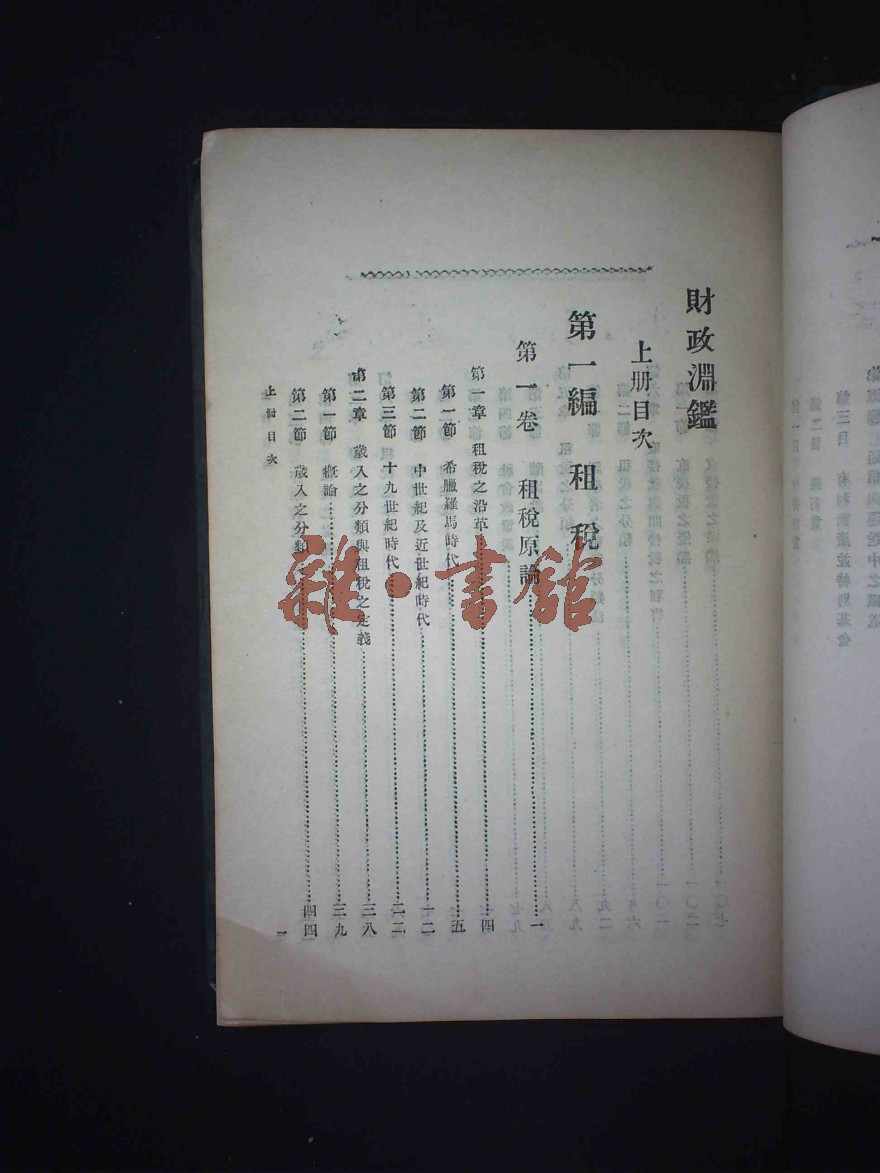 財政淵鑑
上册目次
第一編 租稅
第一卷 租稅原論 一
第一章 租稅之沿革 四
第一節 希臘羅馬時代 五
第二節 中世紀及近世紀時代 一二
第三節 十九世紀時代 二二
第二章 歲入之分類與租稅之定義 三八
第一節 槪論 三九
第二節 歲入之分類 四四
上册目次 一
雜·書館